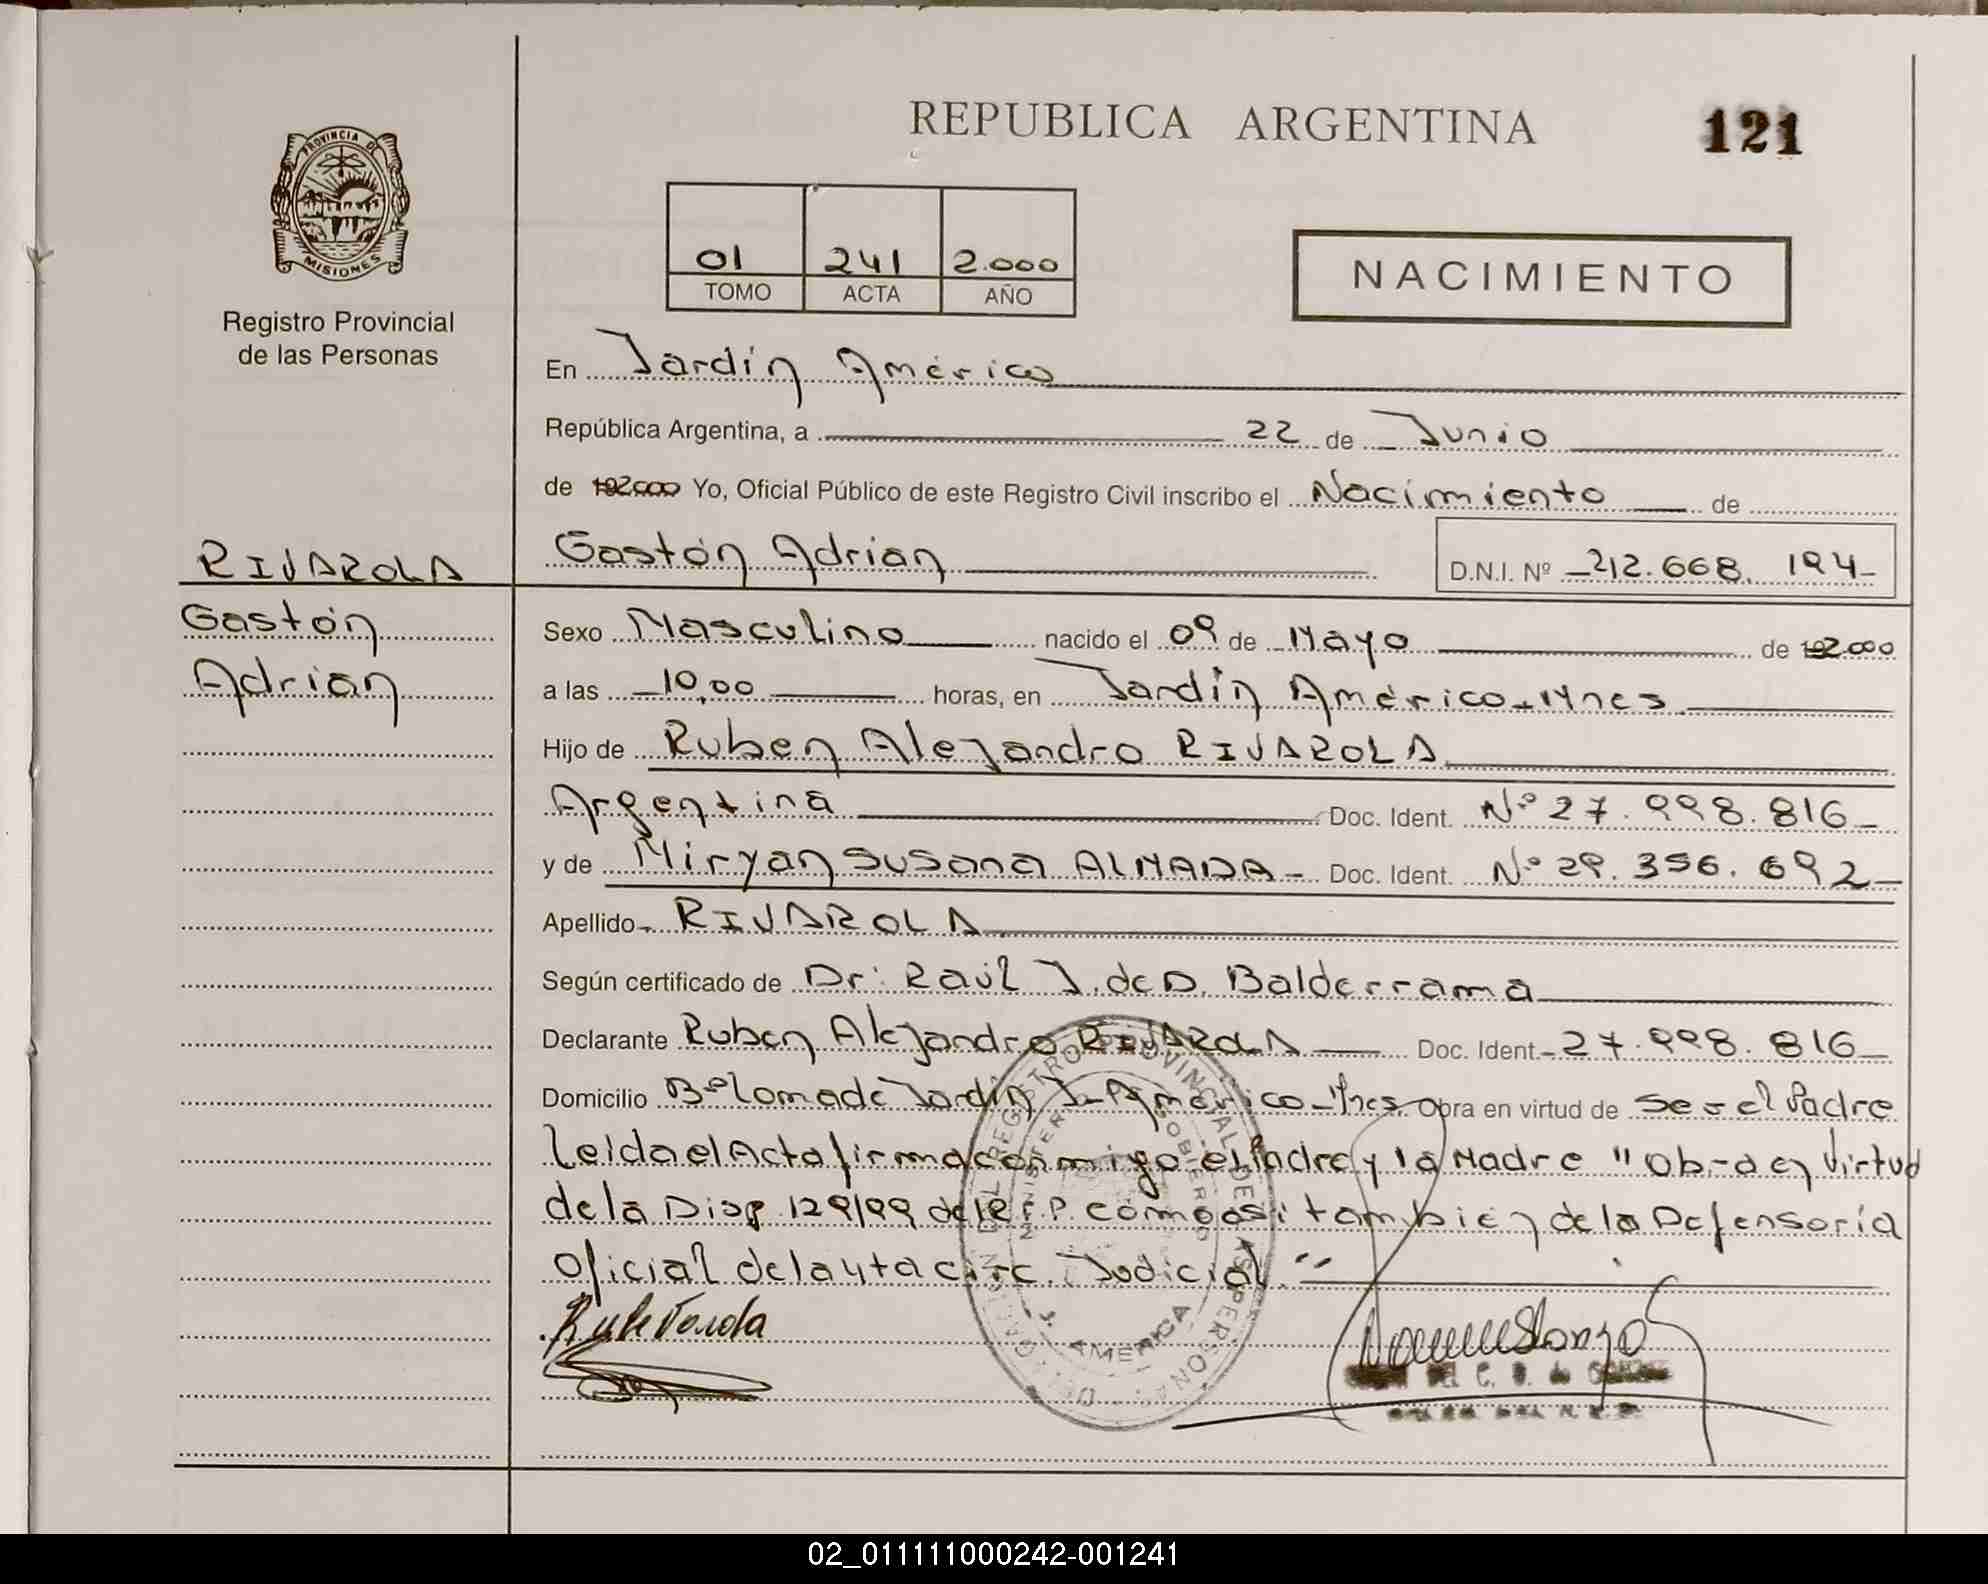 REPUBLICA ARGENTINA
121
PROVINCIA DE
MISIONES
Registro Provincial
de las Personas
01 241 2.000
TOMO ACTA AÑO
NACIMIENTO
En Jardín América
República Argentina, a 22 de Junio
de 192000 Yo, Oficial Público de este Registro Civil inscribo el Nacimiento de
RIVAROLA
Gastón Adrian
D.N.I. Nº 212.668.194
Gastón
Adrian
Sexo Masculino nacido el 09 de Mayo de 192.000
a las 10,00 horas, en Jardín América - Mnes
Hijo de Ruben Alejandro RIVAROLA
Argentina Doc. Ident. Nº 27.998.816
y de Miryan Susana ALMADA - Doc. Ident. Nº 29.356.692
Apellido RIVAROLA
Según certificado de Dr: Raúl J. de D. Balderrama
Declarante Ruben Alejandro RIVAROLA Doc. Ident. 27.998.816
Domicilio Bº Loma de Jardín J- América - Mnes. Obra en virtud de Ser el Padre
Leida el Acta firma conmigo el Padre y la Madre "Obra en Virtud
de la Disp 129/99 del R.P.P. como asi tambien de la Defensoría
Oficial de la 4ta Circ. Judicial."
DEL REGISTRO PROVINCIAL DE LAS PERSONAS
J. AMERICA
02_011111000242-001241